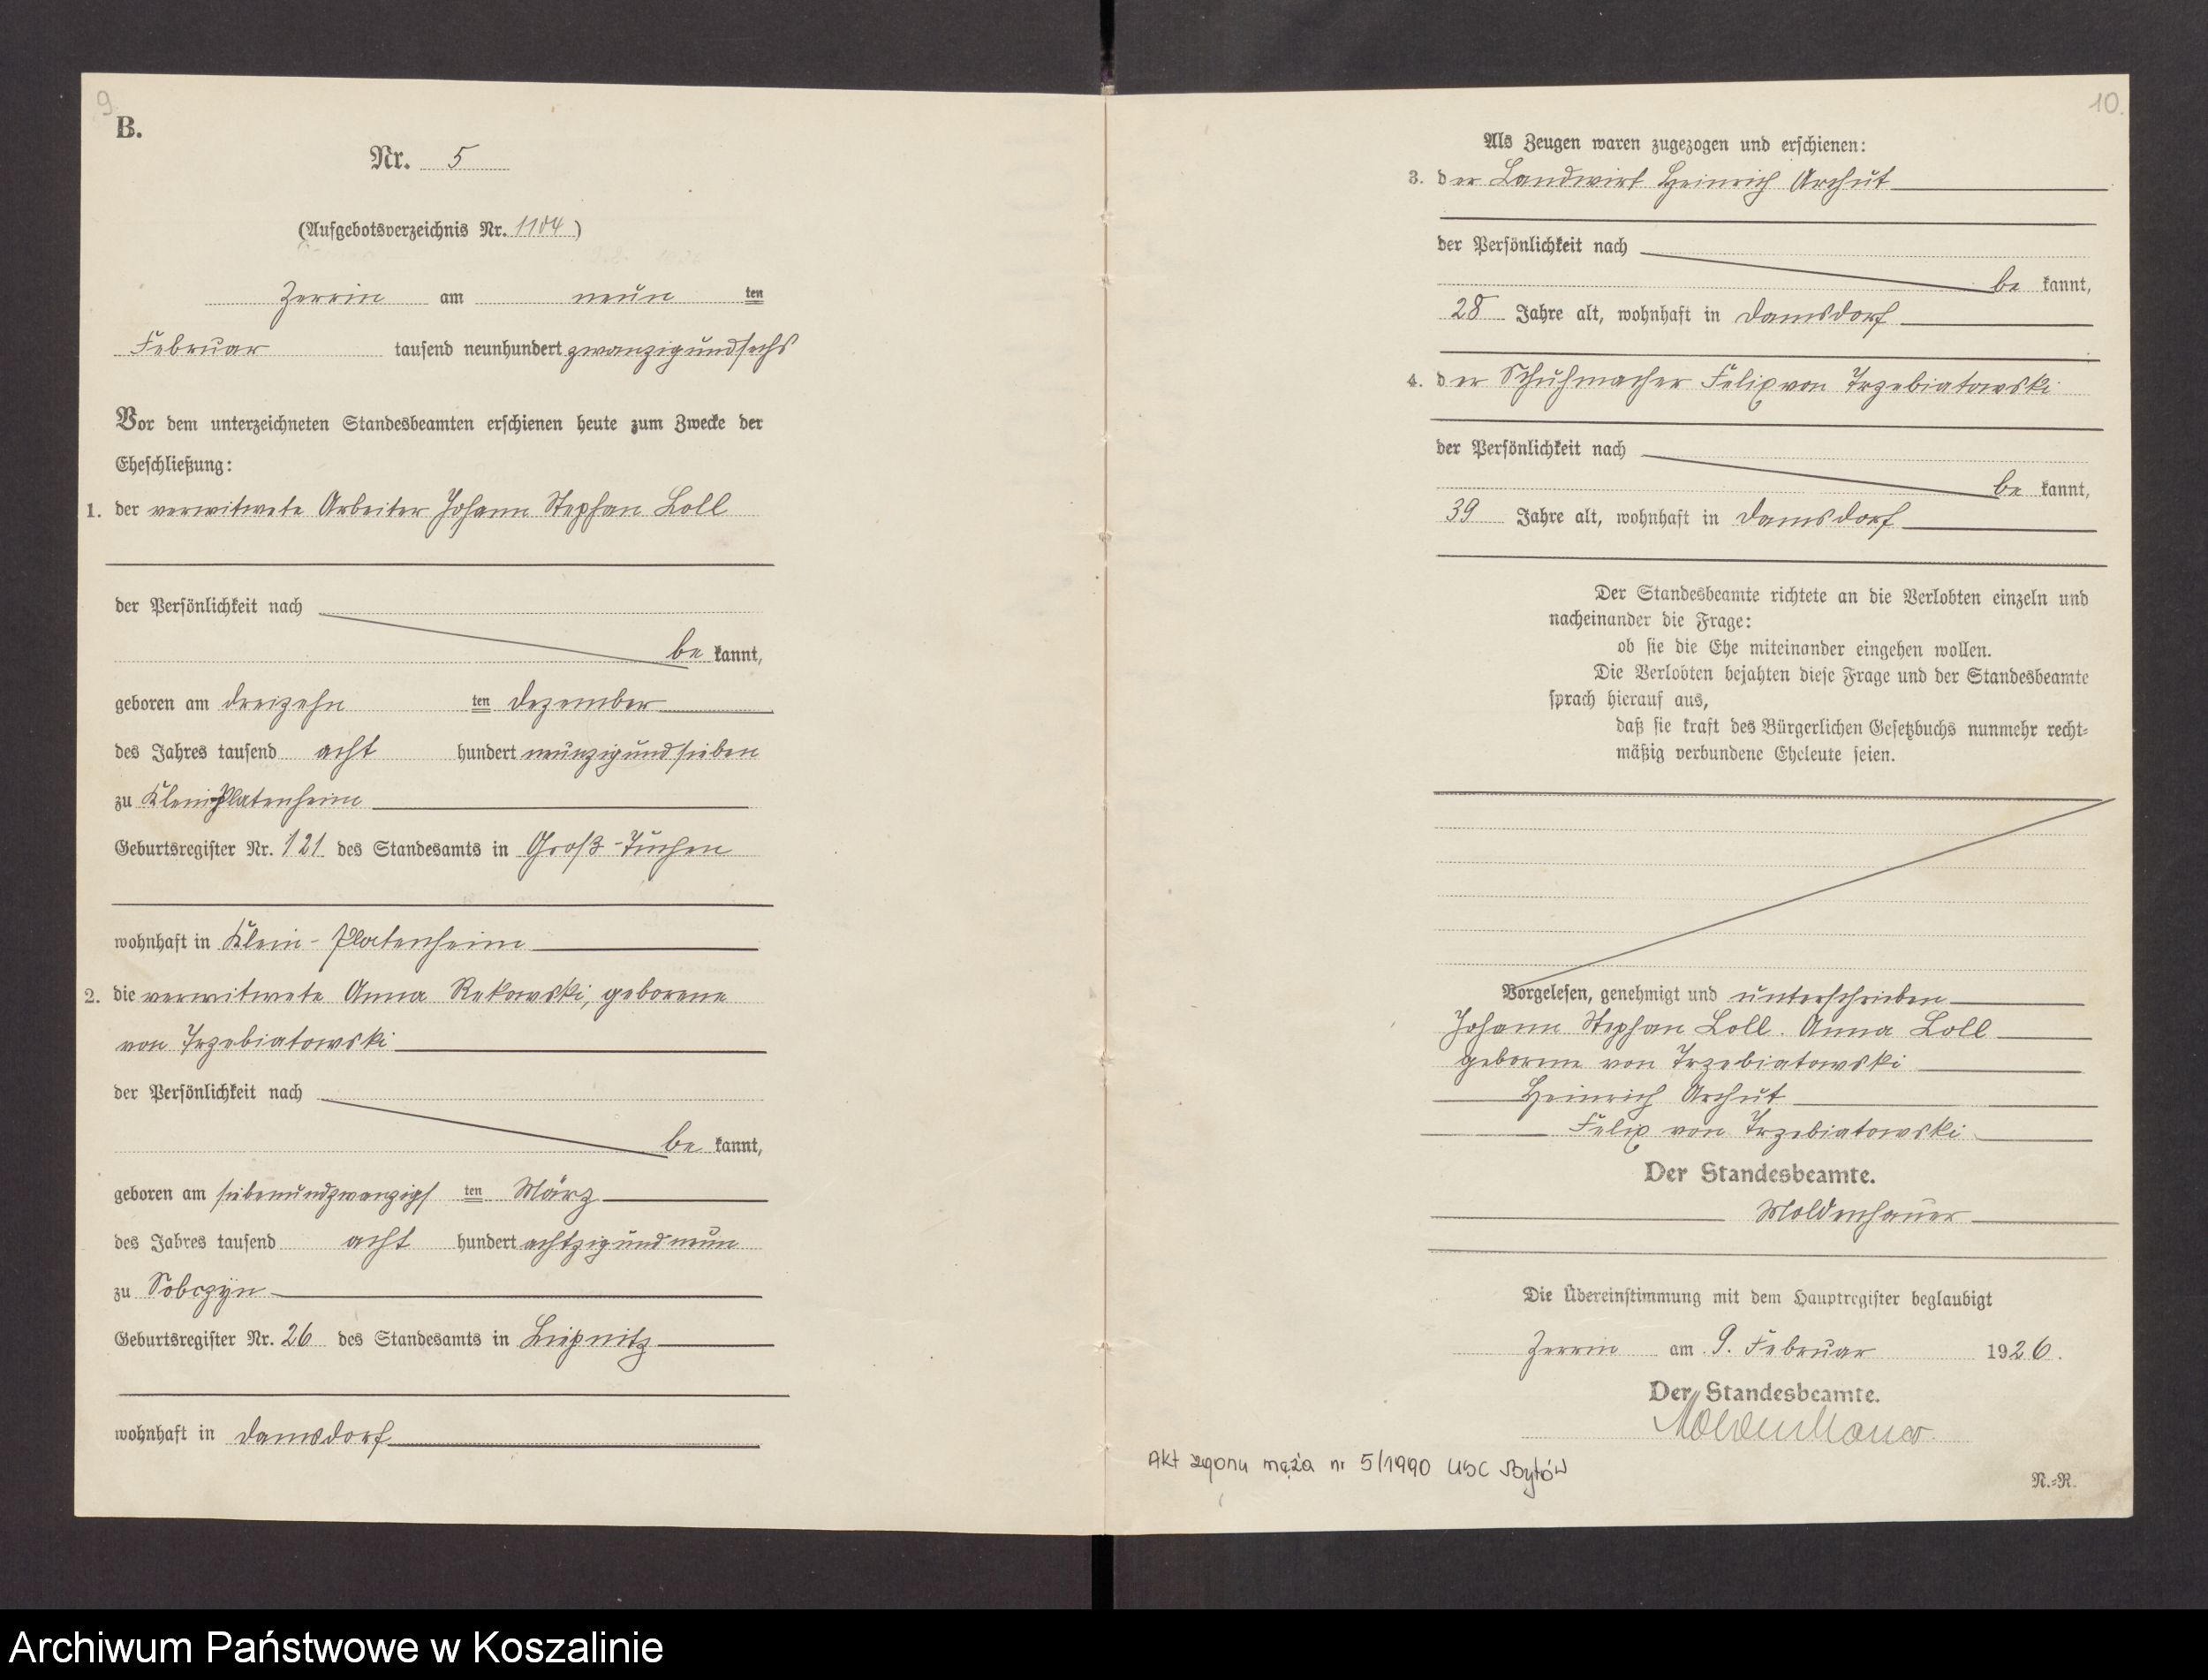 9.
B.
Nr. 5
(Aufgebotsverzeichnis Nr. 1104)
Zerrin am neun ten
Februar tausend neunhundert zwanzigundsechs
Vor dem unterzeichneten Standesbeamten erschienen heute zum Zwecke der
Eheschließung:
1. der verwitwete Arbeiter Johann Stephan Loll
der Persönlichkeit nach
be kannt,
geboren am dreizehn ten Dezember
des Jahres tausend acht hundert neunzigundsieben
zu Klein-Platenheim
Geburtsregister Nr. 121 des Standesamts in Groß-Tuchen
wohnhaft in Klein-Platenheim
2. die verwitwete Anna Rekowski, geborene
von Trzebiatowski
der Persönlichkeit nach
be kannt,
geboren am siebenundzwanzigs ten März
des Jahres tausend acht hundert achtzigundneun
zu Sobczyn
Geburtsregister Nr. 26 des Standesamts in Liepnitz
wohnhaft in Damsdorf
10.
Als Zeugen waren zugezogen und erschienen:
3. der Landwirt Heinrich Archut
der Persönlichkeit nach
be kannt,
28 Jahre alt, wohnhaft in Damsdorf
4. der Schuhmacher Felix von Trzebiatowski
der Persönlichkeit nach
be kannt,
39 Jahre alt, wohnhaft in Damsdorf
Der Standesbeamte richtete an die Verlobten einzeln und
nacheinander die Frage:
ob sie die Ehe miteinander eingehen wollen.
Die Verlobten bejahten diese Frage und der Standesbeamte
sprach hierauf aus,
daß sie kraft des Bürgerlichen Gesetzbuchs nunmehr recht-
mäßig verbundene Eheleute seien.
Vorgelesen, genehmigt und unterschrieben
Johann Stephan Loll. Anna Loll
geborene von Trzebiatowski
Heinrich Archut
Felix von Trzebiatowski
Der Standesbeamte.
Moldenhauer
Die Übereinstimmung mit dem Hauptregister beglaubigt
Zerrin am 9. Februar 1926.
Der Standesbeamte.
Moldenhauer
Akt zgonu męża nr 5/1990 USC Bytów
N.-R.
Archiwum Państwowe w Koszalinie